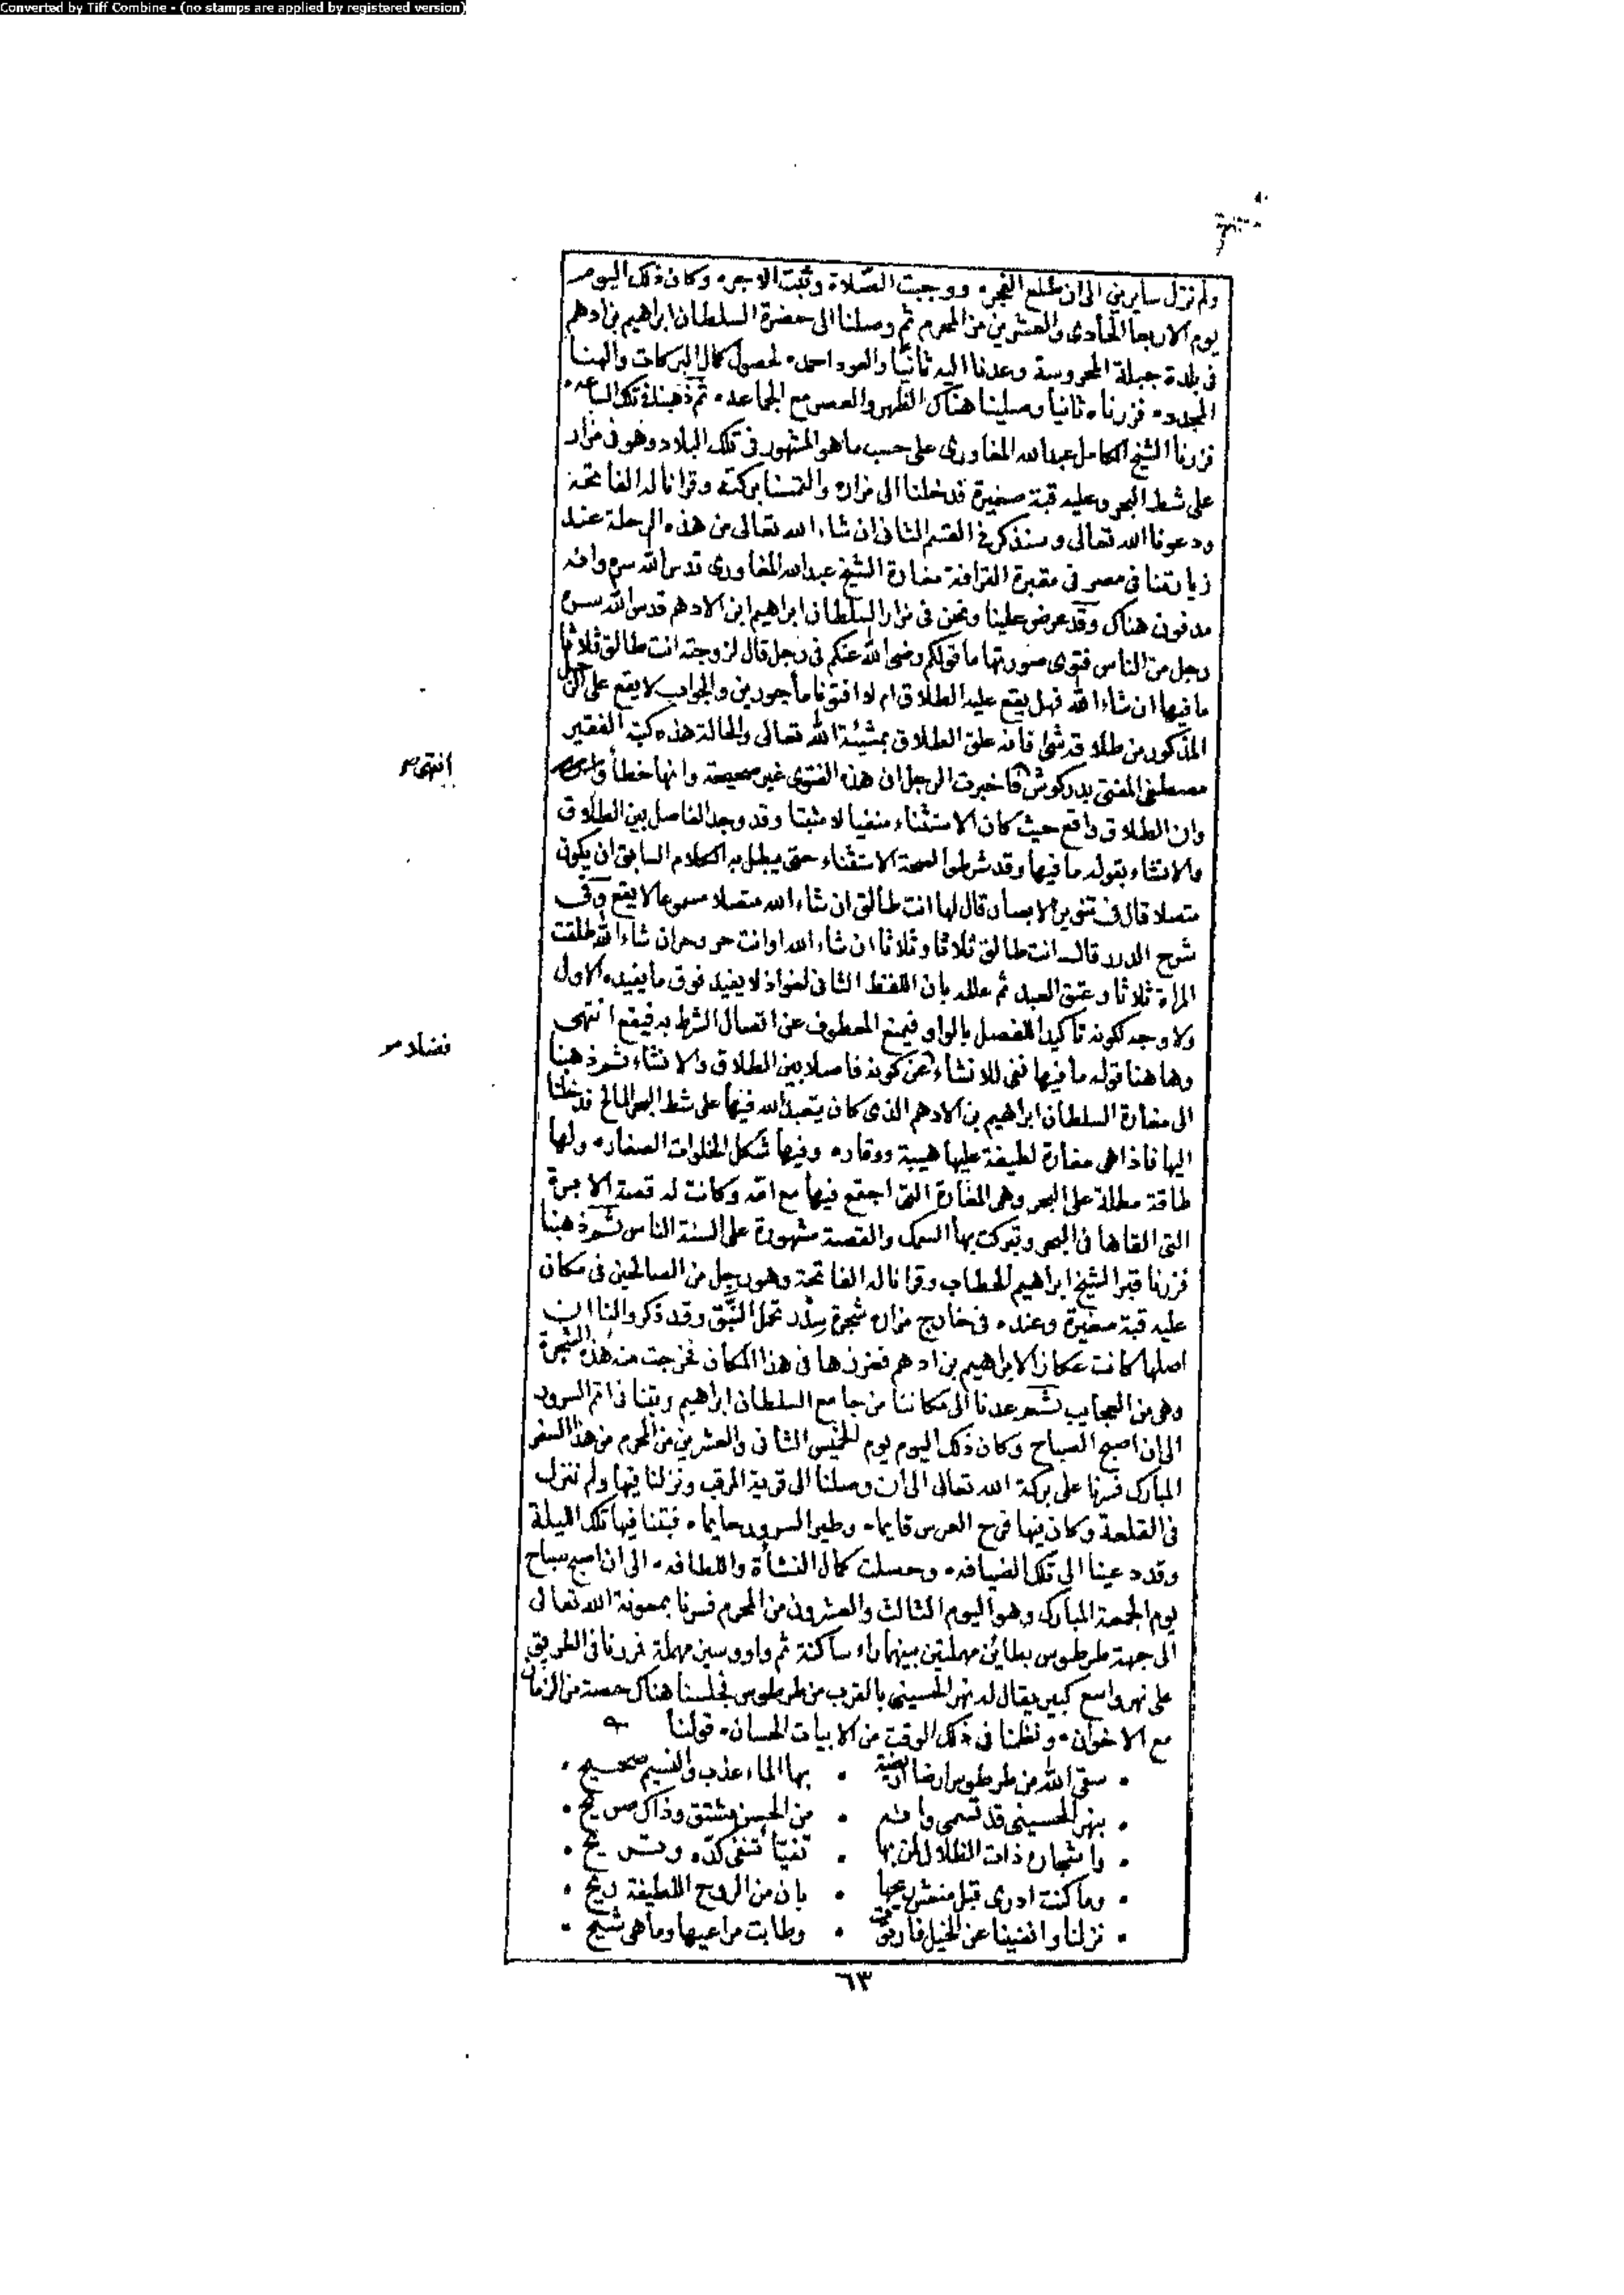 Converted by Tiff Combine - (no stamps are applied by registered version)
ولم نزل سايرين الى ان طلع الفجر، ووجبت الصّلاة وثبت الاجر، وكان ذلك اليوم
يوم الاربعا الحادى والعشرين من المحرم ثم وصلنا الى حضرة السلطان ابراهيم بن ادهم
فى بلدة جبلة المحروسة وعدنا اليه ثانيا والعود احمد، لحصول كمال البركات والهنا
المجدد، فزرناه ثانيا وصلينا هناك الظهر والعصر مع الجماعه، ثم ذهبنا فى تلك الساعه،
فزرنا الشيخ الكامل عبدالله المغاورى على حسب ما هو المشهور فى تلك البلاد وهو فى مزار
على شط البحر وعليه قبة صغيرة فدخلنا الى مزاره والتمسنا بركته وقرانا له الفاتحة
ودعونا الله تعالى وسنذكر فى القسم الثانى ان شاء الله تعالى من هذه الرحلة عند
زيارتنا فى مصر فى مقبرة القرافة مغارة الشيخ عبدالله المغاورى قدس الله سره وانه
مدفون هناك وقد عرض علينا ونحن فى مزار السلطان ابراهيم ابن الادهم قدس الله سره
رجل من الناس فتوى صورتها ما قولكم رضى الله عنكم فى رجل قال لزوجته انت طالق ثلاثا
ما فيها ان شاء الله فهل يقع عليه الطلاق ام لا افتونا مأجورين والجواب لا يقع على الرجل
المذكور من طلاقه شئ فانه علق الطلاق بمشيئة الله تعالى والحالة هذه كتبه الفقير
مصطفى المفتى بدركوش فاخبرت الرجل ان هذه الفتوى غير صحيحة وانها خطأ
انتهى صح
وان الطلاق واقع حيث كان الاستثناء منفيا لا مثبتا وقد وجد الفاصل بين الطلاق
والانشاء بقوله ما فيها وقد شرطوا لصحة الاستثناء حتى يبطل به الكلام السابق ان يكون
متصلا قال فى تنوير الابصار قال لها انت طالق ان شاء الله متصلا مسموعا لا يقع وفى
شرح الدرر قال انت طالق ثلاثا وثلاثا ان شاء الله او انت حر وحر ان شاء الله طلقت
المراة ثلاثا وعتق العبد ثم علله بان اللفظ الثانى لغو اذ لا يفيد فوق ما يفيده الاول
ولا وجه لكونه تاكيدا للفصل بالواو فيمنع المعطوف عن اتصال الشرط به فيقع انتهى
فضلا صح
وها هنا قوله ما فيها نفى للانشاء عن كونه فاصلا بين الطلاق والانشاء ثم ذهبنا
الى مغارة السلطان ابراهيم بن الادهم الذى كان يتعبد الله فيها على شط البحر المالح فدخلنا
اليها فاذا هى مغارة لطيفة عليها هيبة ووقار، وفيها شكل الخلوات الصغار، ولها
طاقة مطلة على البحر وهى المغارة التى اجتمع فيها مع امّه وكانت له قصة الابرة
التى القاها فى البحر وتبركت بها السمك والقصة مشهورة على السنة الناس ثم ذهبنا
فزرنا قبر الشيخ ابراهيم الحطاب وقرانا له الفاتحة وهو رجل من الصالحين فى مكان
عليه قبة صغيرة وعنده فى خارج مزاره شجرة سدر تحمل النبق وقد ذكروا لنا ان
اصلها كانت عكاز الابراهيم بن ادهم فغرزها فى هذا المكان فخرجت منه هذه الشجرة
وهى من العجايب ثم عدنا الى مكاننا من جامع السلطان ابراهيم وبتنا فى اتم السرور
الى ان اصبح الصباح وكان ذلك اليوم يوم الخميس الثانى والعشرين من المحرم من هذا السفر
المبارك فسرنا على بركة الله تعالى الى ان وصلنا الى قرية المرقب ونزلنا فيها ولم ننزل
فى القلعة وكان فيها فرح العرس قايما، وطير السرور حايما، فبتنا فيها تلك الليلة
وقد دعينا الى تلك الضيافه، وحصلت كمال النشأة واللطافه، الى ان اصبح صباح
يوم الجمعة المبارك وهو اليوم الثالث والعشرون من المحرم فسرنا بمعونة الله تعالى
الى جهة طرطوس بطائين مهملتين بينهما راء ساكنة ثم واو وسين مهملة فمررنا فى الطريق
على نهر واسع كبير يقال له نهر الحسينى بالقرب من طرطوس فجلسنا هناك حصة من الزمان
مع الاخوان، ونظمنا فى ذلك الوقت من الابيات الحسان، قولنا
• سقى الله من طرطوس ارضا اريضة • بها الماء عذب والنسيم صحيح •
• بنهر الحسينى قد تسمى وانه • من الحسن مشتق وذاك صريح •
• واشجاره ذات الظلال لمن بها • تفيّأ تنفى كدّه وتريح •
• وما كنت ادرى قبل منعش ريحها • بان من الروح اللطيفة ريح •
• نزلنا وافضينا عن الخيل فارتقت • وطابت مراعيها وما هى شيح •
٦٣